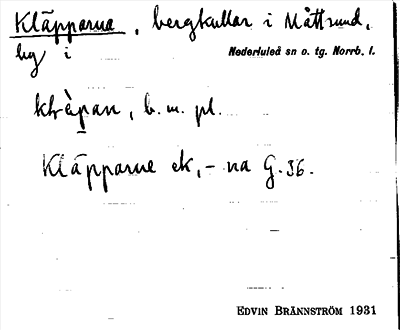 Kläpparna, bergkullar i Måttsund,
by i Nederluleå sn o. tg. Norrb. l.
klräpan, b. m. pl.
Kläpparne ek, -na G. 36.
EDVIN BRÄNNSTRÖM 1931